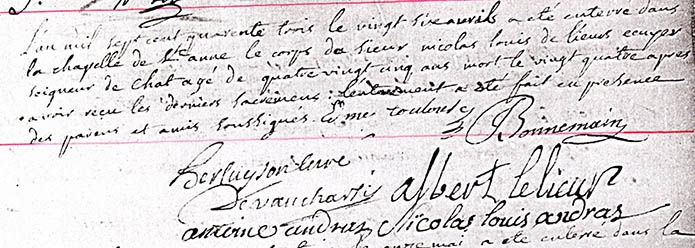 L'an mil sept cent quarente trois le vingt six avril a été enterré dans
la chapelle de Ste anne le corps du sieur nicolas louis de lieurs ecuyer
seigneur de Chat agé de quatre vingt cinq ans mort le vingt quatre apres
avoir recu les derniers sacremens: l'enterrement a eté fait en presence
des parens et amis soussignes
Bonnemain
De vauchassis albert Lelieur
antoine andras Nicolas louis andras
a été enterré dans la